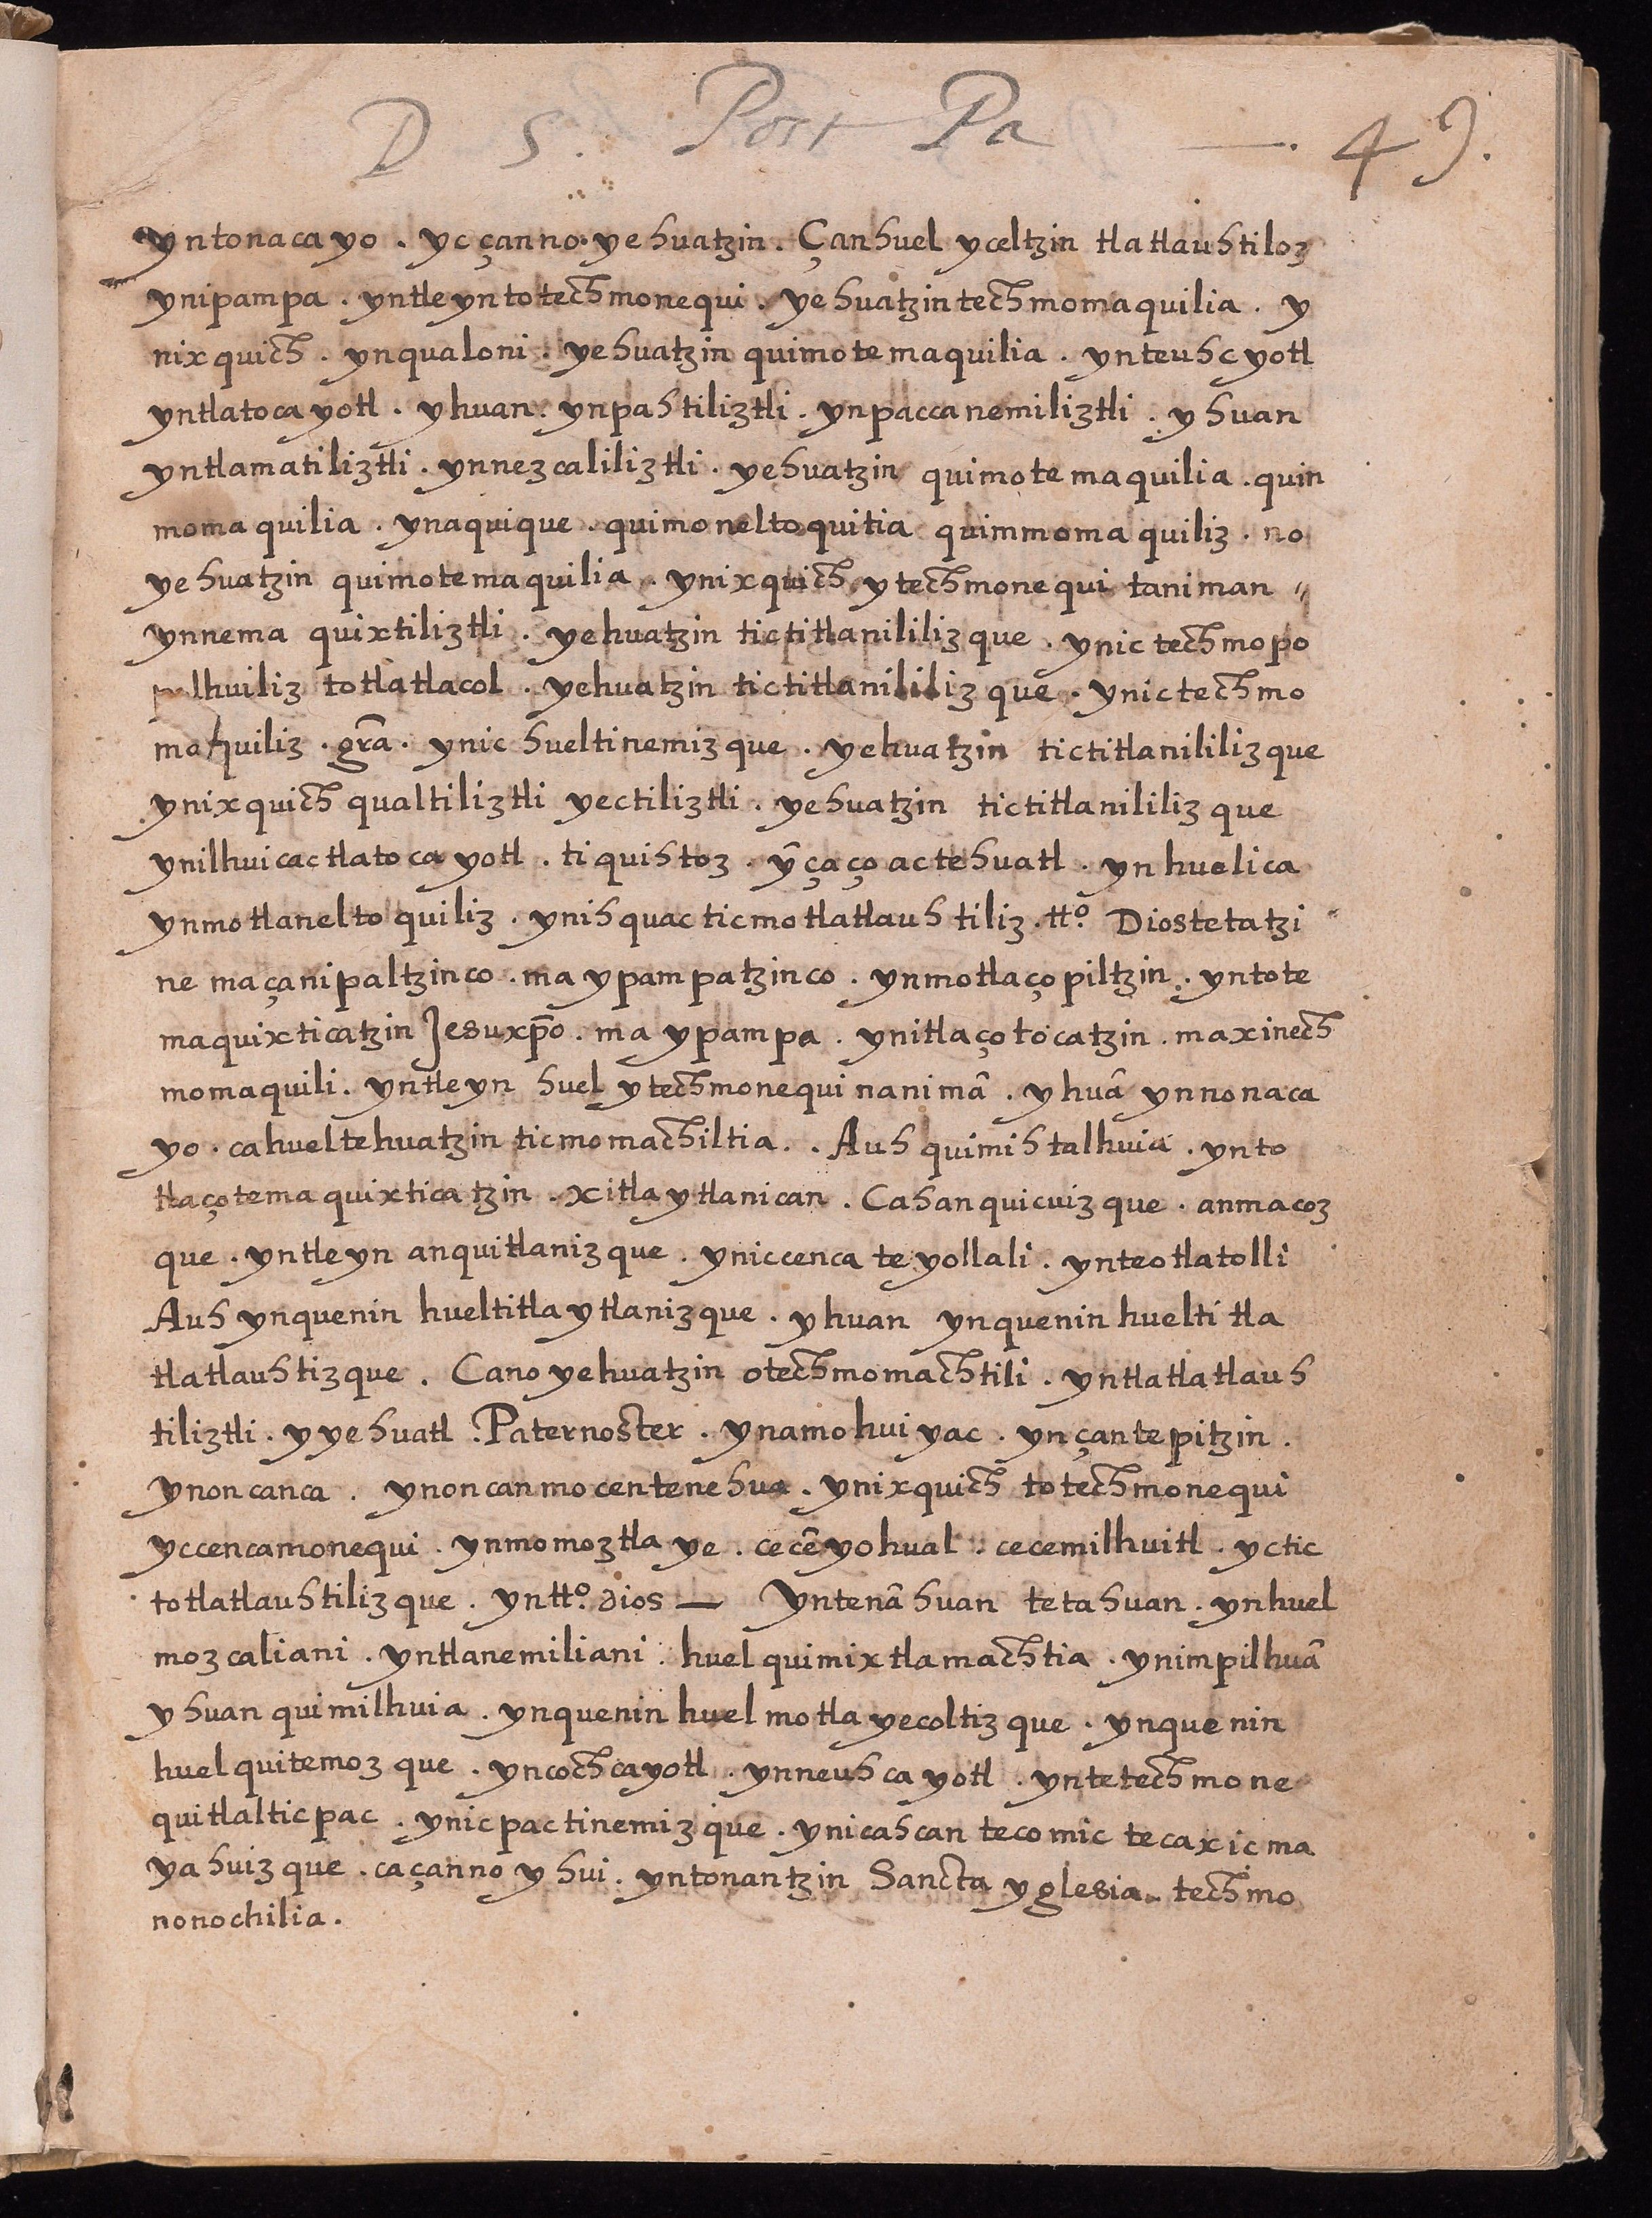 D 5. Post Pa —. 49.
yntonacayo . yc çanno. yehuatzin . Çanhuel yceltzin tlatlauhtiloz
ynipampa . yntleyntotechmonequi . yehuatzintechmomaquilia . y
nixquich . ynqualoni . yehuatzin quimotemaquilia . ynteuhcyotl
yntlatocayotl . yhuan . ynpahtiliztli . ynpaccanemiliztli . yhuan
yntlamatiliztli . ynnezcaliliztli . yehuatzin quimotemaquilia . quin
momaquilia . ynaquique . quimoneltoquitia quimmomaquiliz . no
yehuatzin quimotemaquilia . ynixquich ytechmonequi taniman "
ynnema quixtiliztli . yehuatzin tictitlanililizque . ynic techmopo
lhuiliz totlatlacol . yehuatzin tictitlanililizque . ynictechmo
maquiliz . gr̃a . ynic hueltinemizque . yehuatzin tictitlanililizque
ynixquich qualtiliztli yectiliztli . yehuatzin tictitlanililizque
ynilhuicactlatocayotl . tiquihtoz . ỹ çaço actehuatl . yn huelica
ynmotlaneltoquiliz . ynihquac ticmotlatlauhtiliz . tt.º Diostetatzi
ne maçanipaltzinco . ma ypampatzinco . ynmotlaçopiltzin . yntote
maquixticatzin Jesuxp̃o . ma ypampa . ynitlaçotocatzin . maxinech
momaquili . yntleyn huel ytechmonequi nanimã . yhuã ynnonaca
yo . cahueltehuatzin ticmomachiltia . . Auh quimihtalhuia . ynto
tlaçotemaquixticatzin . xitlaytlanican . Cahanquicuizque . anmacoz
que . yntleyn anquitlanizque . yniccenca teyollali . ynteotlatolli
Auh ynquenin hueltitlaytlanizque . yhuan ynquenin huelti tla
tlatlauhtizque . Cano yehuatzin otechmomachtili . yntlatlatlauh
tiliztli . yyehuatl . Paternoster . ynamohuiyac . ynçantepitzin .
ynoncanca . ynoncanmocentenehua . ynixquich totechmonequi
yccencamonequi . ynmomoztlaye . cecẽyohual . cecemilhuitl . yctic
totlatlauhtilizque . yntt.º dios — Yntenã huan tetahuan . ynhuel
mozcaliani . yntlanemiliani . huel quimixtlamachtia . ynimpilhuã
yhuan quimilhuia . ynquenin huel motlayecoltizque . ynquenin
huel quitemozque . yncochcayotl . ynneuhcayotl . yntetechmone
quitlalticpac . ynicpactinemizque . ynicahcan tecomic tecaxicma
yahuizque . caçanno yhui . yntonantzin Sancta yglesia . techmo
nonochilia .